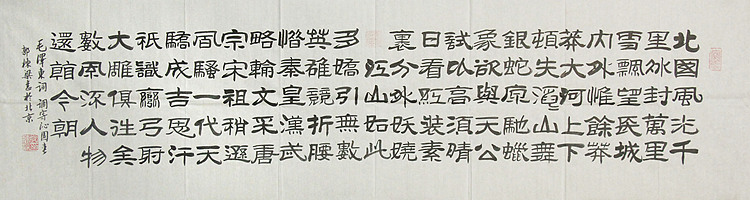 北國風光千
里冰封萬里
雪飄望長城
內外惟餘莽
莽大河上下
頓失滔滔山舞
銀蛇原馳蠟
象欲與天公
試比高須晴
日看紅裝素
裹分外妖嬈
江山如此
多嬌引無數
英雄競折腰
惜秦皇漢武
略輸文采唐
宗宋祖稍遜
風騷一代天
驕成吉思汗
祇識彎弓射
大雕俱往矣
數風流人物
還看今朝
毛澤東詞 調寄沁園春
書於北京